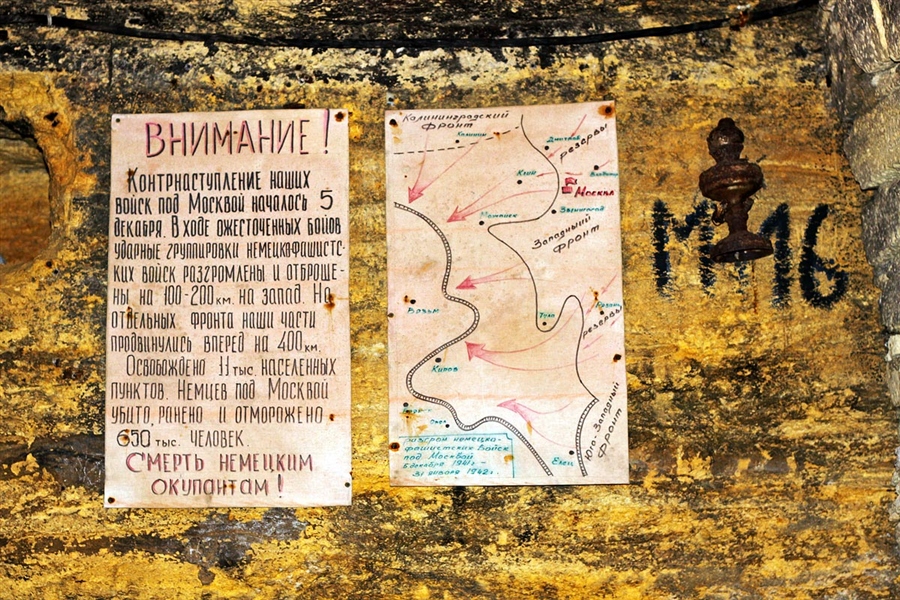 ВНИМАНИЕ!
Контрнаступление наших
войск под Москвой началось 5
декабря. В ходе ожесточённых боёв
ударные группировки немецкафашистс-
ких войск разгромлены и отброше-
ны на 100-200км. на запад. На
отдельных фронта наши части
продвинулись вперед на 400км.
Освобождено 11 тыс. населенных
пунктов. Немцев под Москвой
убито, ранено и отморожено
650 тыс. человек.
Смерть немецким
окупантам!
Калининградский
фронт
Калинин
Дмитров
резервы
Клин
Москва
Можайск
Звенигород
Западный
фронт
Тула
резервы
Киров
Елец
Юго-Западный
фронт
разгром немецка-
фашистских Войск
под Москвой
5 декабря 1941г -
31 января 1942г.
М-16